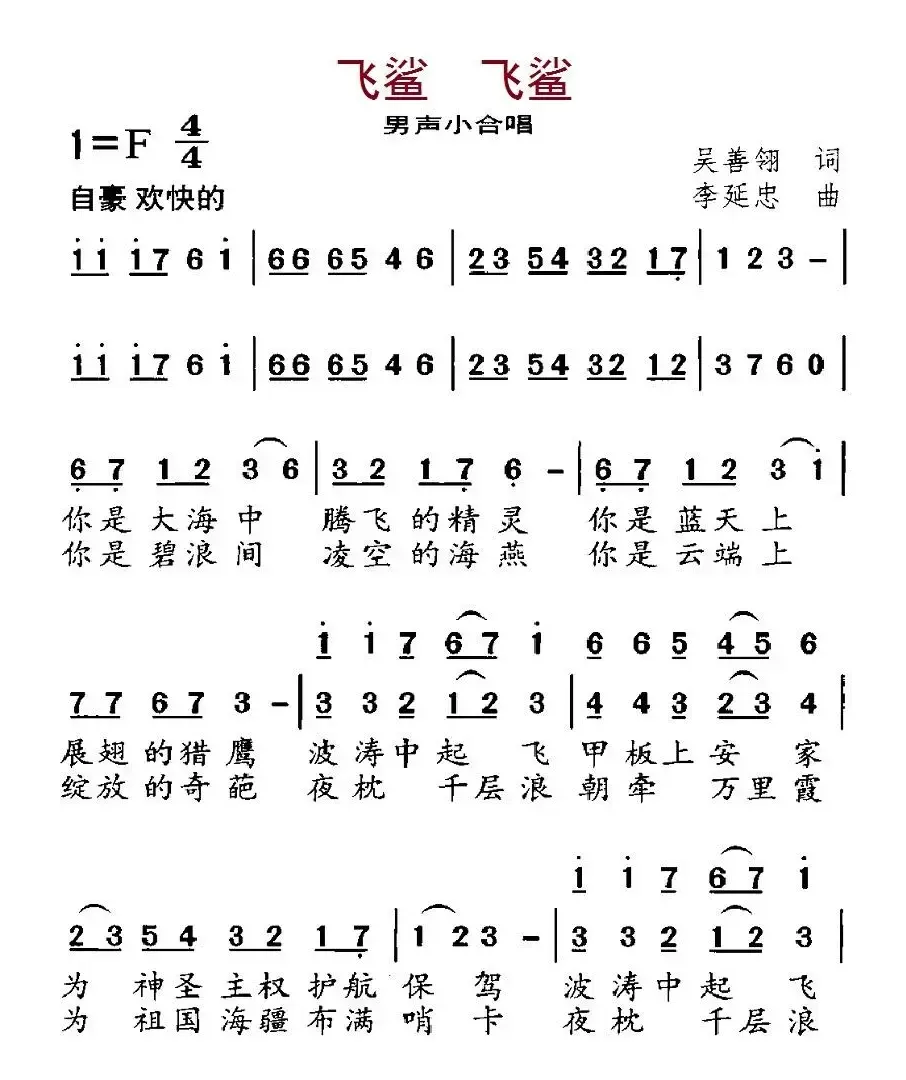 飞鲨 飞鲨
男声小合唱
1=F 4/4
吴善翎 词
自豪 欢快的
李延忠 曲
i i i 7 6 i | 6 6 6 5 4 6 | 2 3 5 4 3 2 1 7 | 1 2 3 – |
i i i 7 6 i | 6 6 6 5 4 6 | 2 3 5 4 3 2 1 2 | 3 7 6 0 |
6 7 1 2 3 6 | 3 2 1 7 6 – | 6 7 1 2 3 i |
你是大海中 腾飞的精灵 你是蓝天上
你是碧浪间 凌空的海燕 你是云端上
i i 7 6 7 i 6 6 5 4 5 6
7 7 6 7 3 – | 3 3 2 1 2 3 | 4 4 3 2 3 4 |
展翅的猎鹰 波涛中起飞 甲板上安家
绽放的奇葩 夜枕 千层浪 朝牵 万里霞
i i 7 6 7 i
2 3 5 4 3 2 1 7 | 1 2 3 – | 3 3 2 1 2 3 |
为 神圣主权护航 保驾 波涛中起飞
为 祖国海疆布满 哨卡 夜枕 千层浪